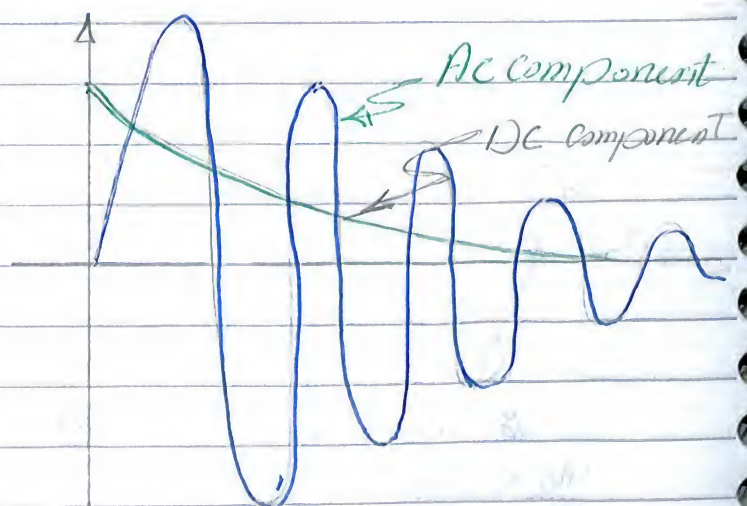 Ac component
DC component